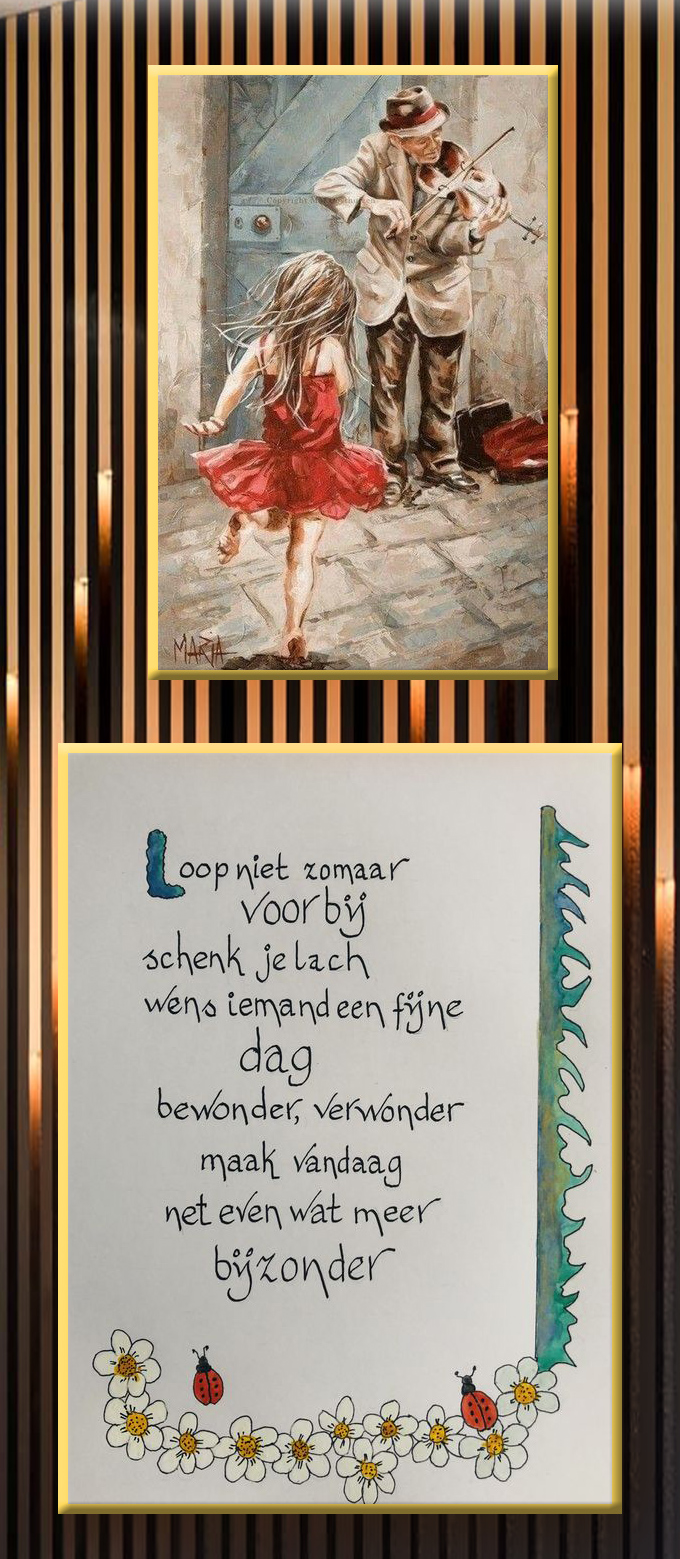 MARJA
Loop niet zomaar
voorbij
schenk je lach
wens iemand een fijne
dag
bewonder, verwonder
maak vandaag
net even wat meer
bijzonder